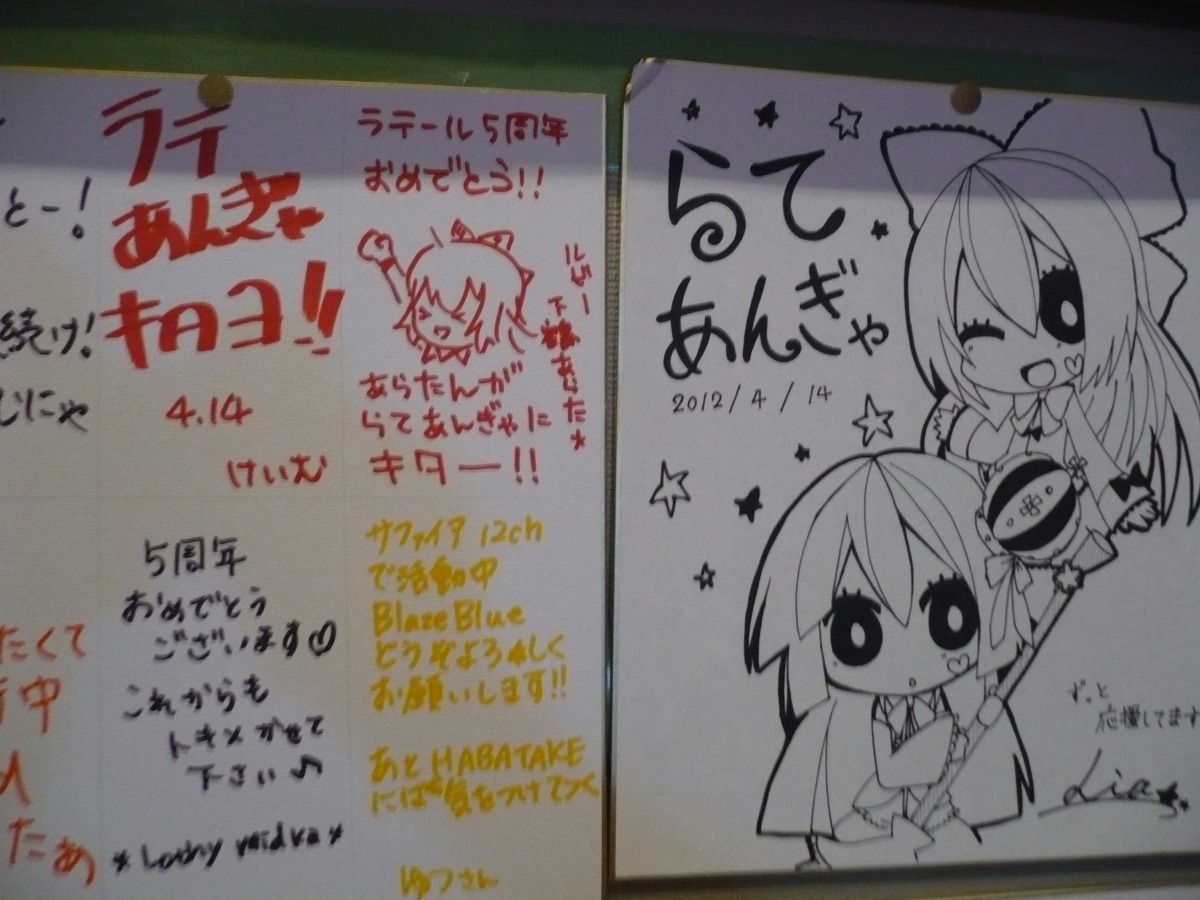 とー!
続け!
むにゃ
たくて
中
たぁ
ラテ
あんぎゃ
キタヨ!!
4.14
けいむ
5周年
おめでとう
ございます♡
これからも
トキメかせて
下さい♪
ラテール5周年
おめでとう!!
ルビー下
あらたんが
らてあんぎゃに
キター!!
サファイア 12ch
で活動中
BlazeBlue
どうぞよろしく
お願いします!!
あとHABATAKE
には気をつけて
ゆつさん
らて
あんぎゃ
2012/4/14
ずっと
応援してます
Lia